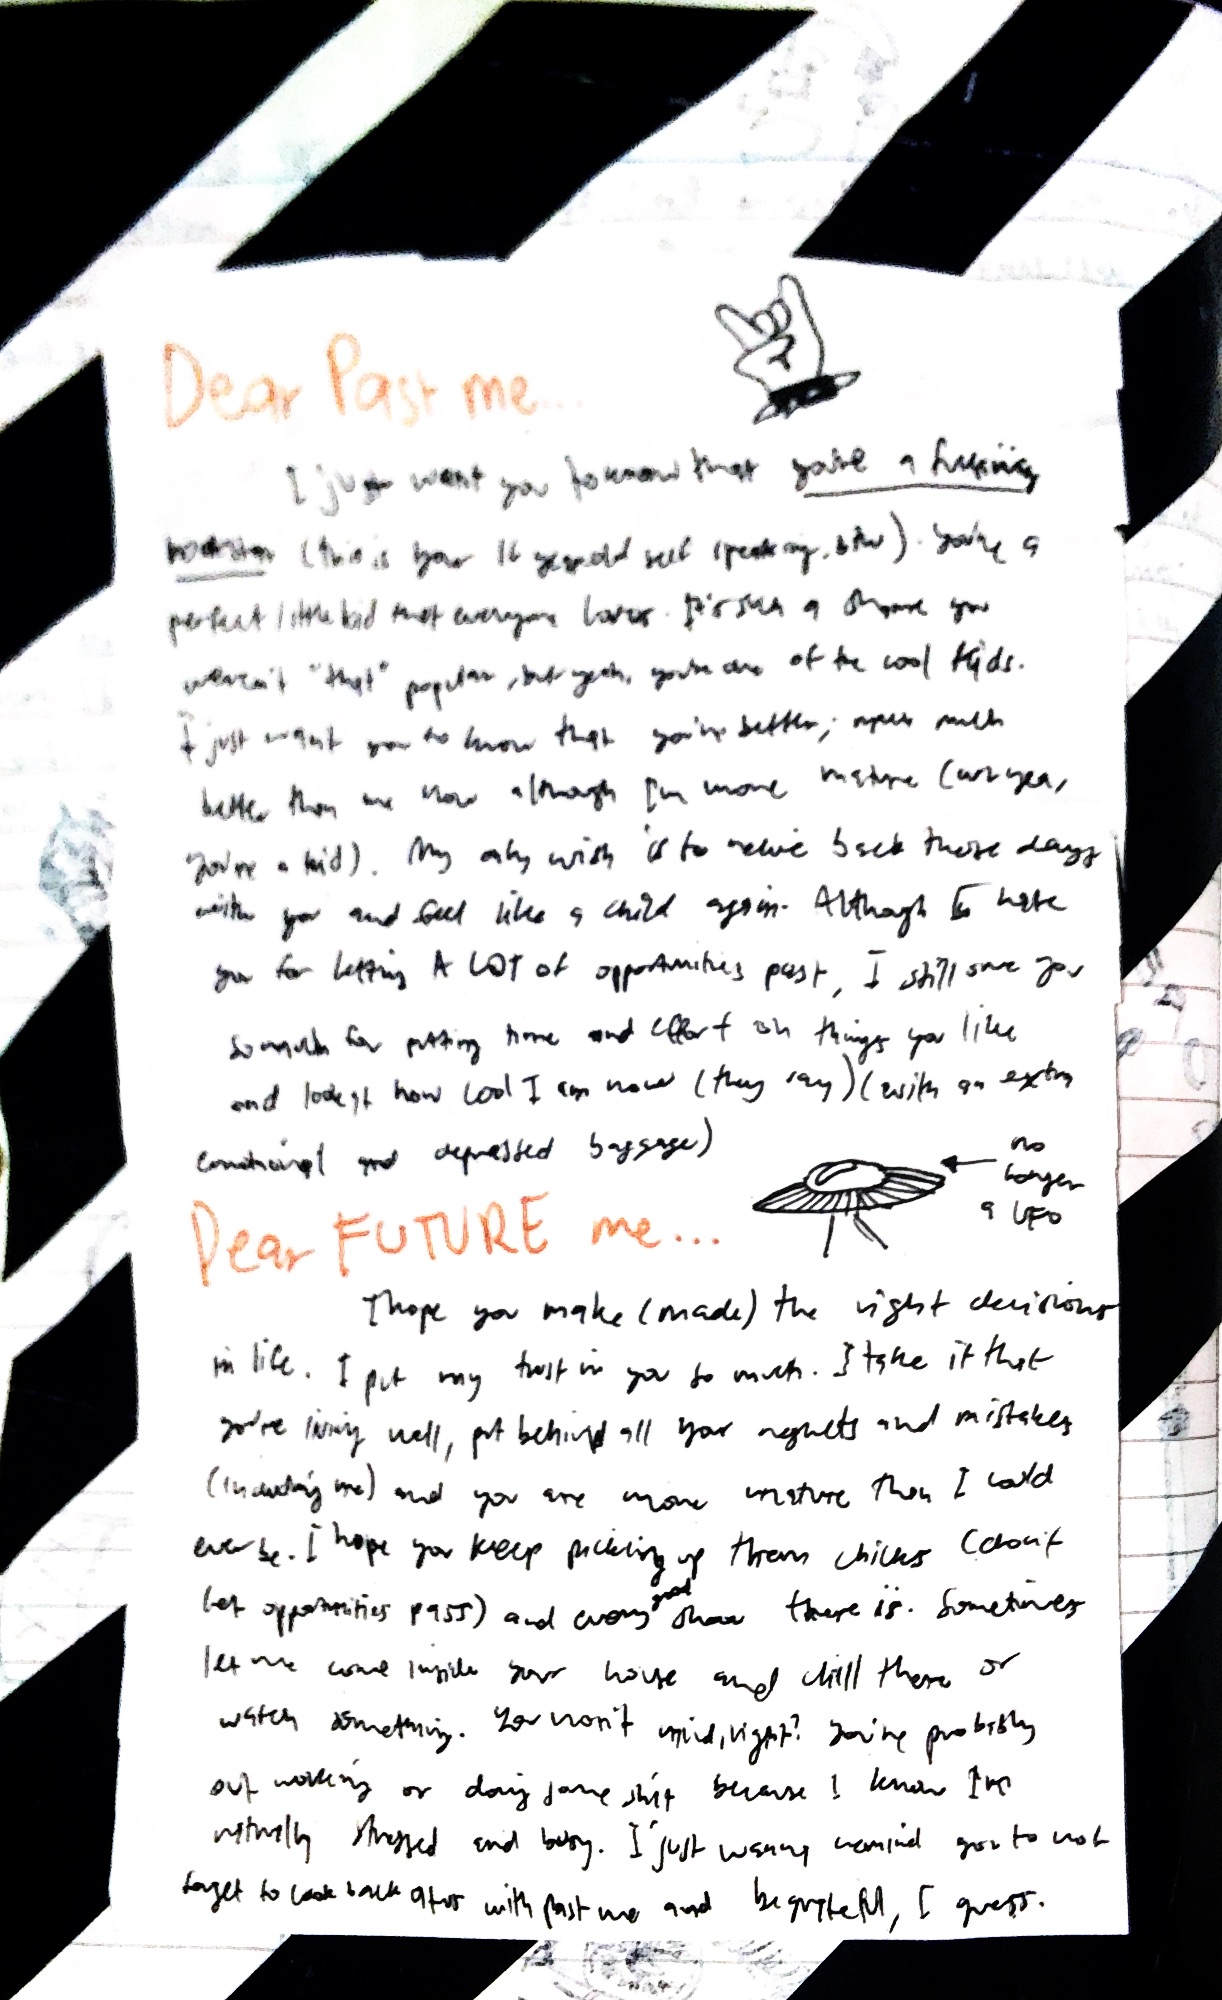 Dear Past me...
I just want you to know that you're a fucking
rockstar (this is your 16 year old self speaking, btw). You're a
perfect little kid that everyone loves. It's such a shame you
weren't "that" popular, but yeah, you're one of the cool kids.
I just want you to know that you're better, much
better than me now although I'm more mature (well yea,
you're a kid). My only wish is to relive back those days
with you and feel like a child again. Although I hate
you for letting A LOT OF opportunities past, I still owe you
so much for putting time and effort on things you like
and look at how cool I am now (they say) (with an extra
emotional and depressed baggage)
no
longer
a UFO
Dear FUTURE me...
I hope you make (made) the right decisions
in life. I put my trust in you so much. I take it that
you're living well, put behind all your regrets and mistakes
(including me) and you are more mature than I could
ever be. I hope you keep picking up them chicks (don't
let opportunities pass) and every good show there is. Sometimes
let me come inside your house and chill there or
watch something. You won't mind, right? You're probably
out working or doing some shit because I know I'm
naturally stressed and busy. I just wanna remind you to not
forget to look back at us with past me and be grateful, I guess.